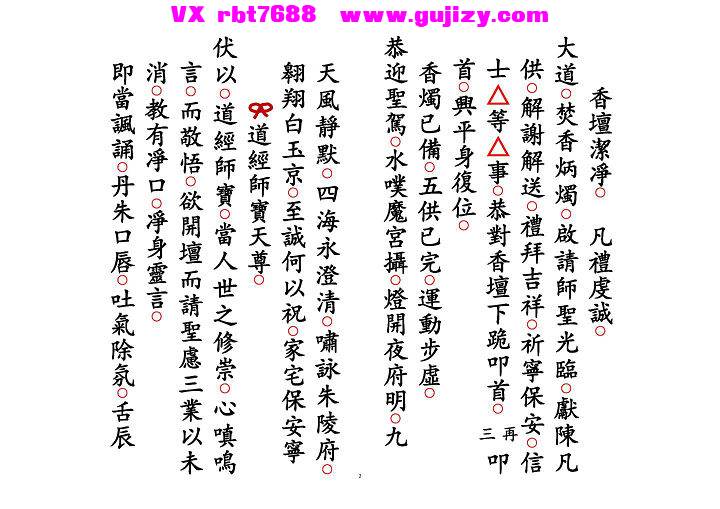 VX rbt7688 www.gujizy.com
香壇潔凈○ 凡禮虔誠○
大道○焚香炳燭○啟請師聖光臨○獻陳凡
供○解謝解送○禮拜吉祥○祈寧保安○信
士△等△事○恭對香壇下跪叩首○再三叩
首○興平身復位○
香燭已備○五供已完○運動步虛○
恭迎聖駕○水噗魔宮攝○燈開夜府明○九
天風靜默○四海永澄清○嘯詠朱陵府○
翱翔白玉京○至誠何以祝○家宅保安寧
道經師寶天尊○
伏以○道經師寶○當人世之修崇○心嗔鳴
言○而敬悟○欲開壇而請聖慮三業以未
消○教有凈口○凈身靈言○
即當諷誦○丹朱口唇○吐氣除氛○舌辰
2